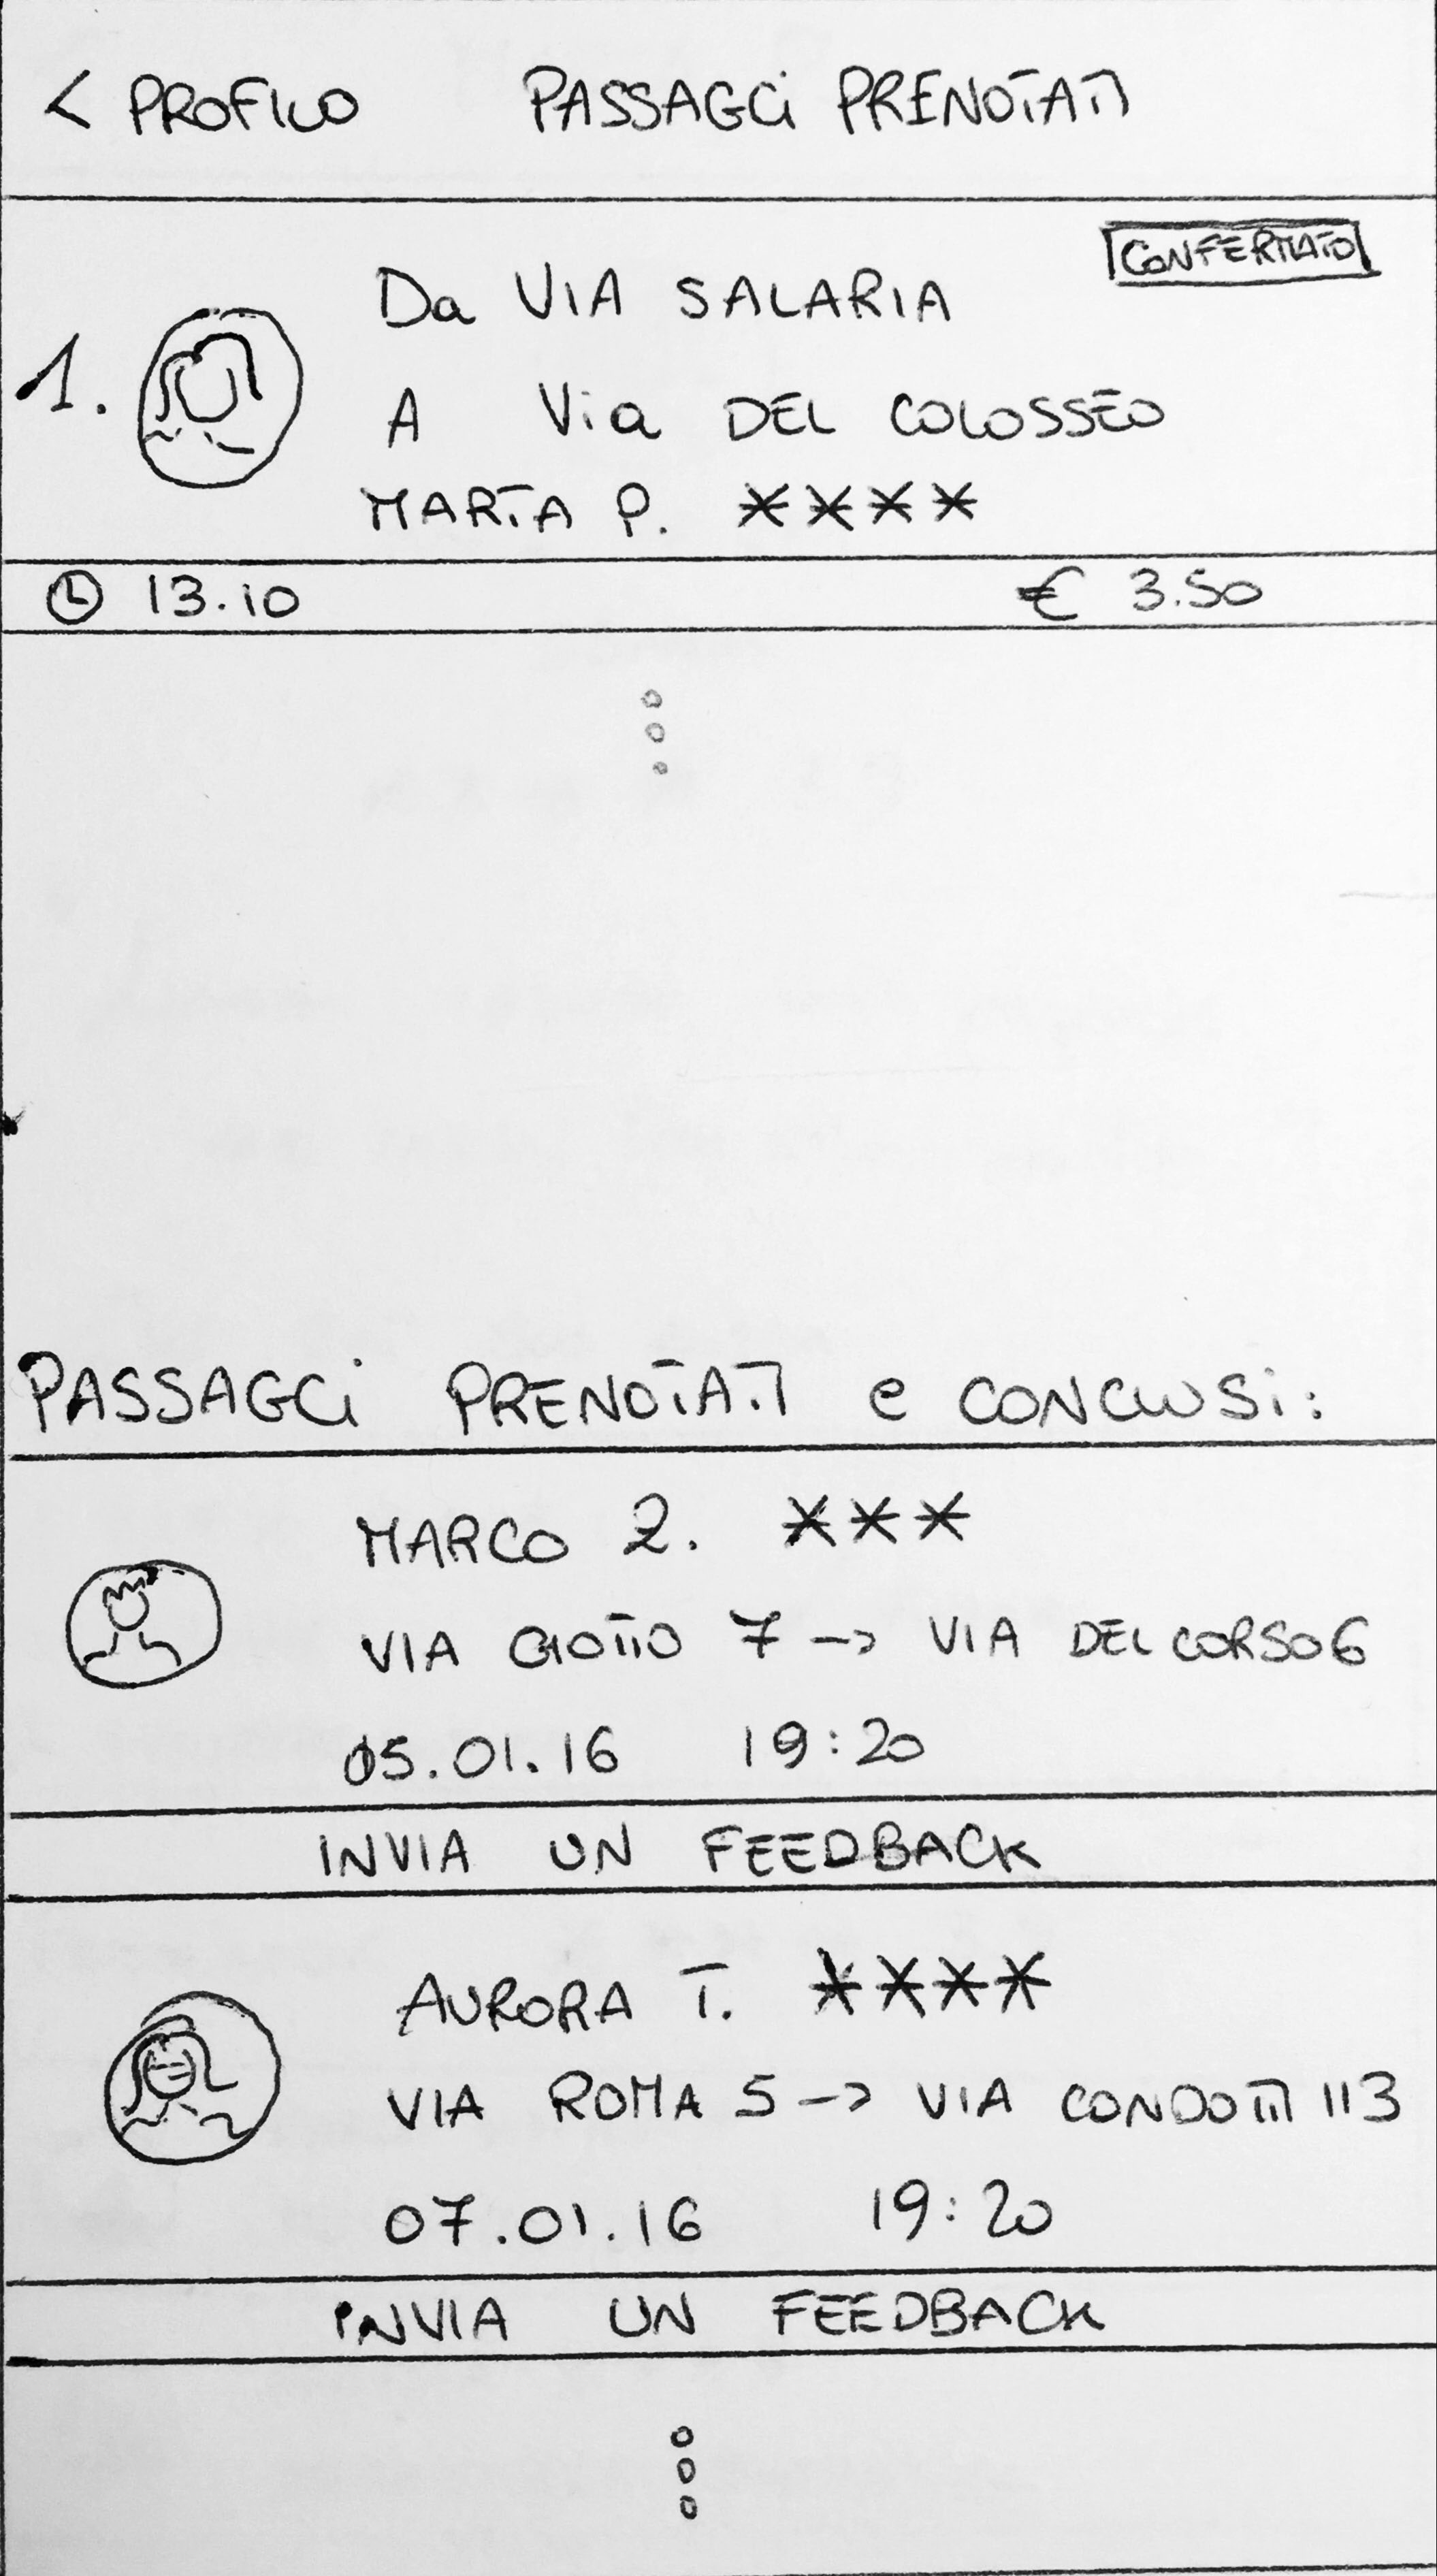 < PROFILO PASSAGGi PRENOTATI
CONFERMATO
1. Da VIA SALARIA
A Via DEL COLOSSEO
MARTA P. ****
13.10 € 3.50
PASSAGGi PRENOTATI e CONCLUSi:
MARCO Z. ***
VIA GIOTTO 7 -> VIA DEL CORSO 6
05.01.16 19:20
INVIA UN FEEDBACK
AURORA T. ****
VIA ROMA 5 -> VIA CONDOTTI 113
07.01.16 19:20
INVIA UN FEEDBACK